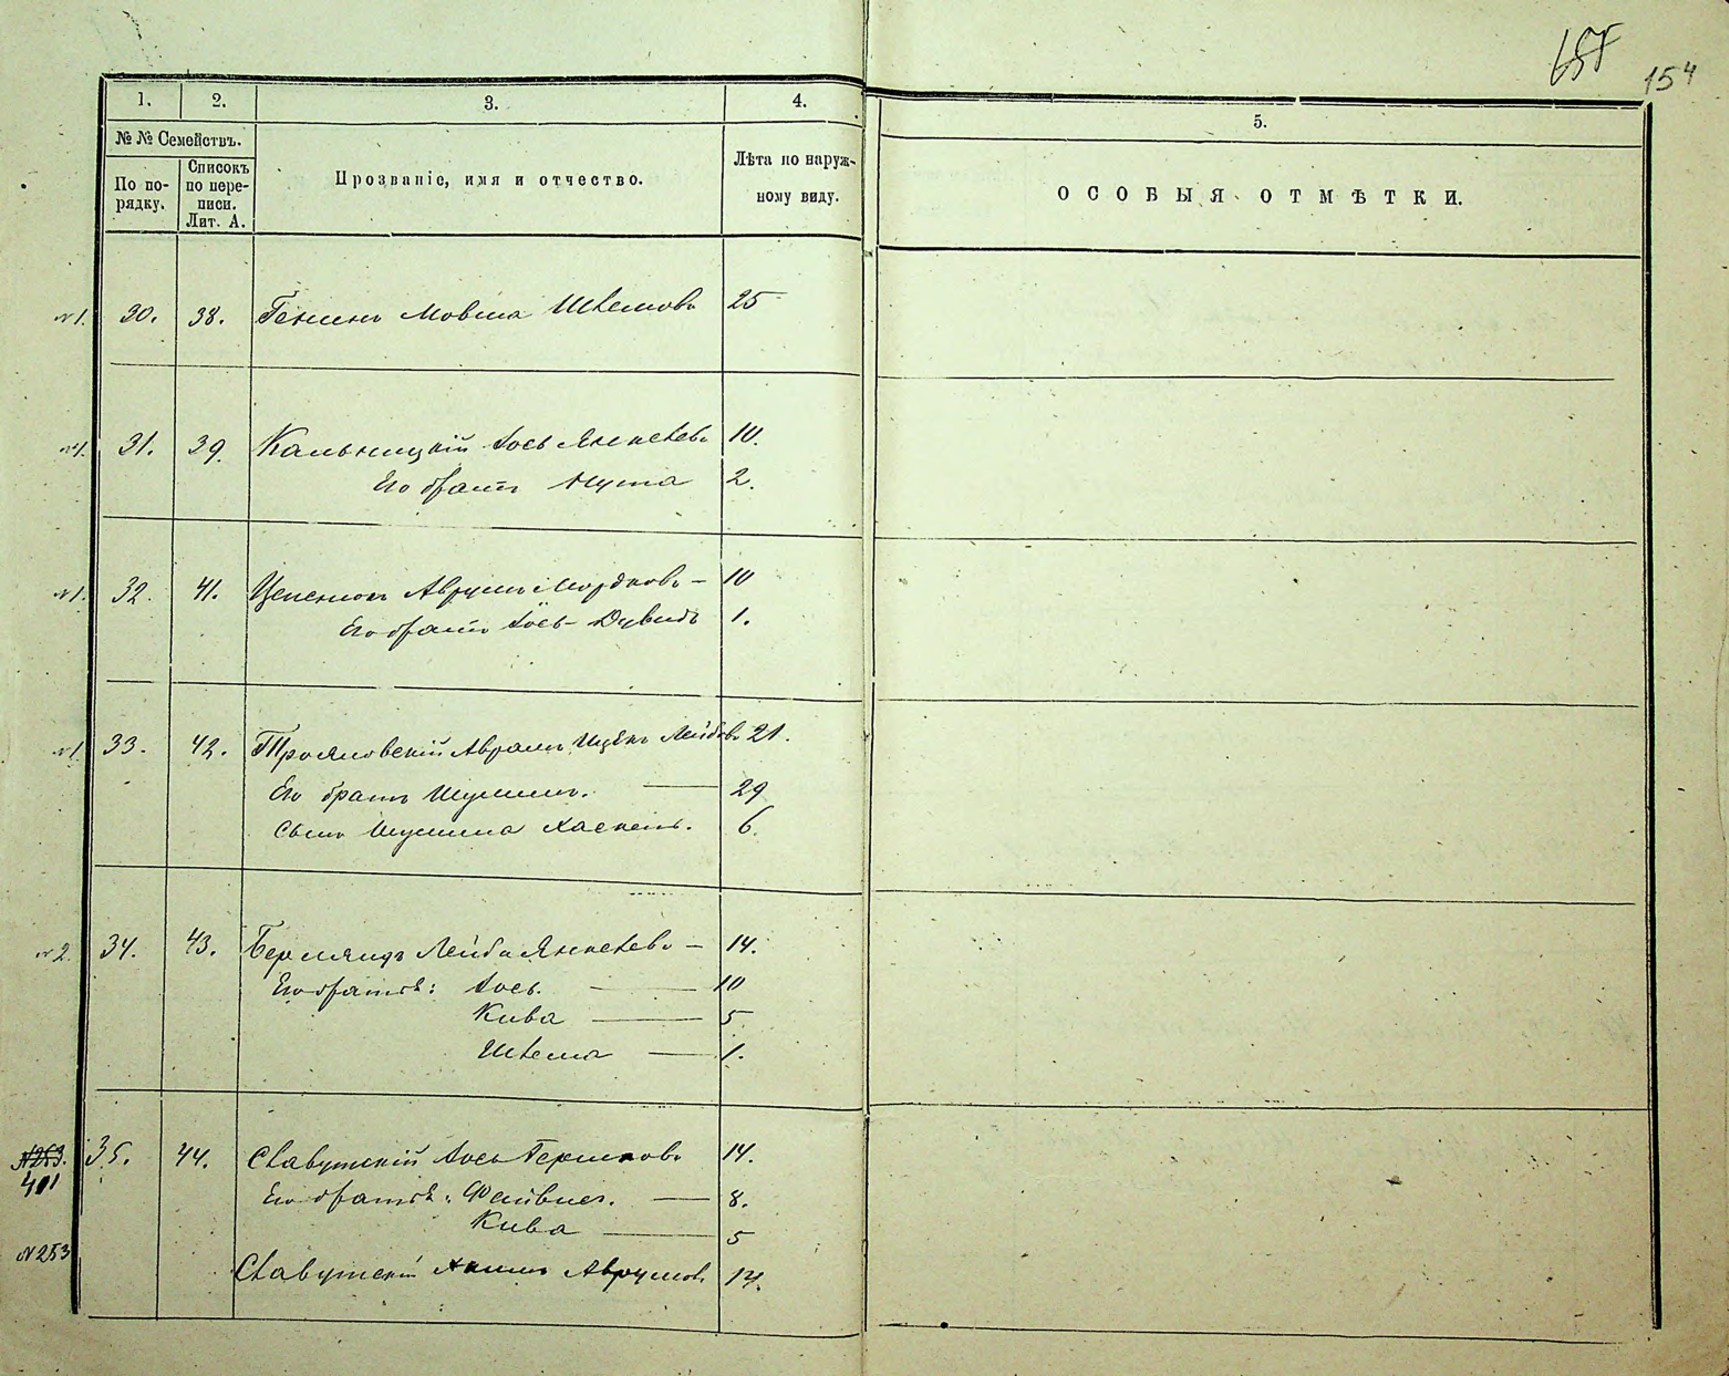 154
1. 2. 3. 4. 5.
№ № Семействъ.
По по-
рядку.
Списокъ
по пере-
писи.
Лит. А.
Прозваніе, имя и отчество.
Лѣта по наруж-
ному виду.
ОСОБЫЯ ОТМѢТКИ.
№1. 30. 38. Генинъ Мовша Шлемовъ 25
№1. 31. 39. Кальницкій Іось Янкелевъ 10.
Его братъ Нута 2.
№1. 32. 41. Аврумъ Мордковъ — 10
Его братъ Іось-Дувидъ 1.
№1. 33. 42. Трояновскій Аврамъ Ицекъ Лейбовъ 21.
Его братъ Шулимъ. — 29
Сынъ Шулима Хаскель. 6.
№2. 34. 43. Берляндъ Лейба Янкелевъ — 14.
Его братья: Іось. — 10
Кива — 5
Шлема — 1.
№253. 35. 44. Славутскій Іось Гершковъ 14.
401
Его братья: Файвиль. — 8.
Кива — 5
№253 Славутскій Хаимъ Аврумовъ 14.